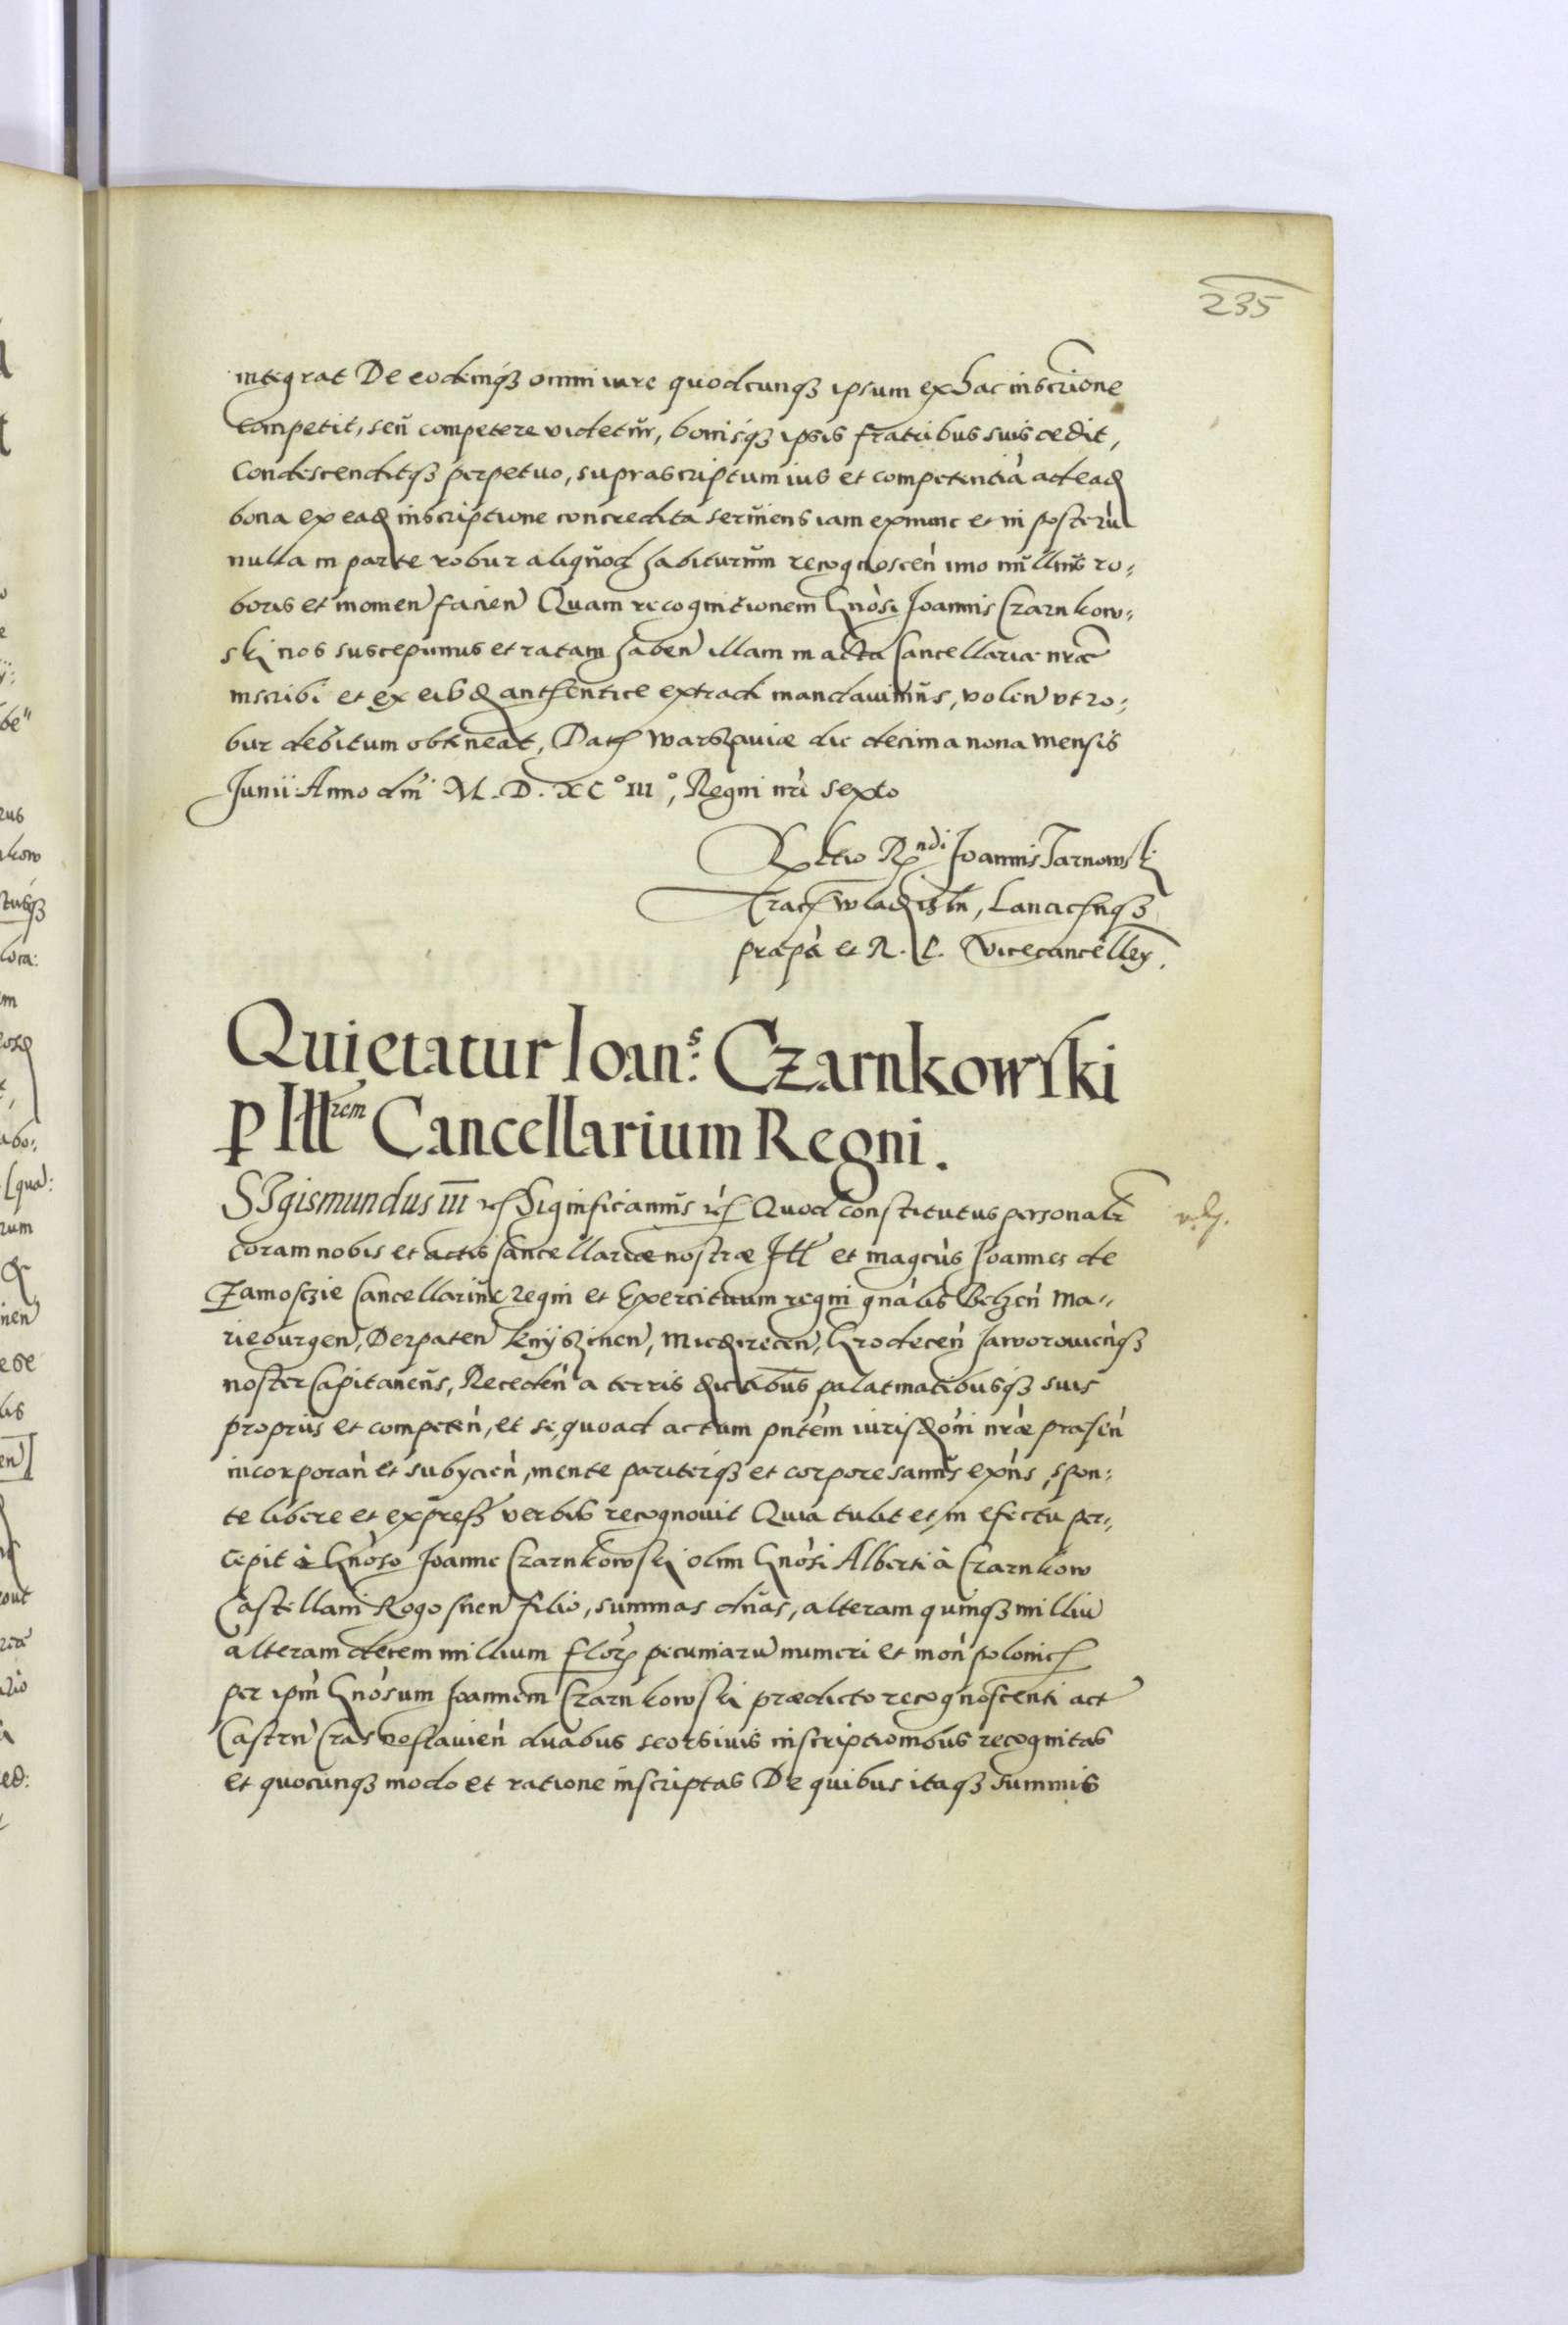 235
integrat De eodemq₃ omni iure quodcunq₃ ipsum ex hac inscrione
competit, seu competere videtur, bonisq₃ ipsis fratribus suis cedit,
Condescenditq₃ perpetuo, suprascriptum ius et competentiã ad ead
bona ex ead inscriptione concredita serviens iam exnunc et in posterũ
nulla in parte robur aliquod habiturum recognoscen imo nullius ro,
boris et momen facien Quam recognitionem Gnosi Joannis Czarnkow,
ski nos suscepimus et ratam haben illam in acta Cancellariæ nræ
inscribi et ex eibd authentice extradi mandavimus, volen ut ro,
bur debitum obtineat, Dat Warszaviæ die decima nona mensis
Junii Anno dni M. D. XC° III°, Regni nri sexto
Rltio Rndi Joannis Tarnowski
Crac Wladisln, Lancicnq₃
præpti et R. P. Vicecancellrÿ.
Quietatur Ioan:s Czarnkowski
p Illrem Cancellarium Regni.
SIgismundus III etc Significamus etc Quod constitutus personalr
coram nobis et actis Cancellariæ nostræ Ill et magcus Joannes de
Zamosczie Cancellarius regni et Exercituum regni gnalis Belzen Ma„
rieburgen, Derpaten Knÿszinen, Miedzirecen, Grodecen Jaworovienq₃
noster Capitaneus, Receden a terris dictibus palatinatibusq₃ suis
propriis et competen, et se, quoad actum pntem iurisdoni nræ præsen
incorporan et subÿcien, mente pariterq₃ et corpore sanus exns, spon,
te libere et express verbis recognovit Quia tulit et in efectu per„
cepit à Gnoso Joanne Czarnkowski olim Gnosi Alberti à Czarnkow
Castellani Rogosnen filio, summas duas, alteram quinq₃ milliũ
alteram decem millium flor pecuniarũ numeri et mon polonic
per ipm Gnosum Joannem Czarnkowski prædicto recognoscenti act
Castrn Crasnostavien duabus seorsivis inscriptionibus recognitas
et quocunq₃ modo et ratione inscriptas De quibus itaq₃ summis